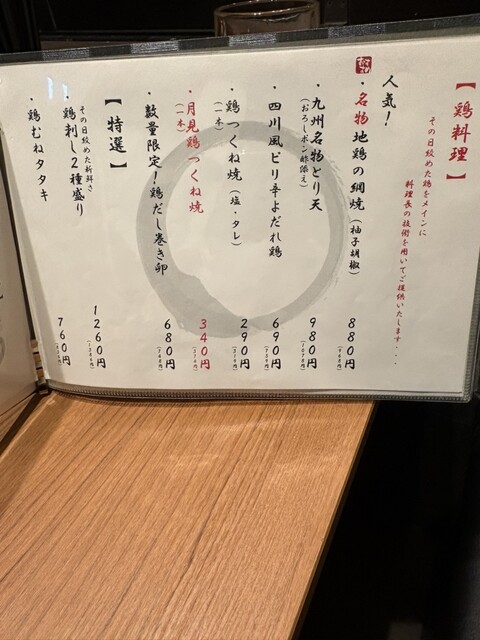 【鶏料理】
その日絞めた鶏をメインに
料理長の技術を用いてご提供いたします...
人気！
・名物地鶏の網焼（柚子胡椒） 880円
・九州名物とり天 980円
（おろしポン酢添え）
・四川風ピリ辛よだれ鶏 690円
・鶏つくね焼（塩・タレ） 290円
（一本）
・月見鶏つくね焼 340円
（一本）
・数量限定！鶏だし巻き卵 680円
【特選】
その日絞めた新鮮さ
・鶏刺し2種盛り 1260円
・鶏むねタタキ 760円